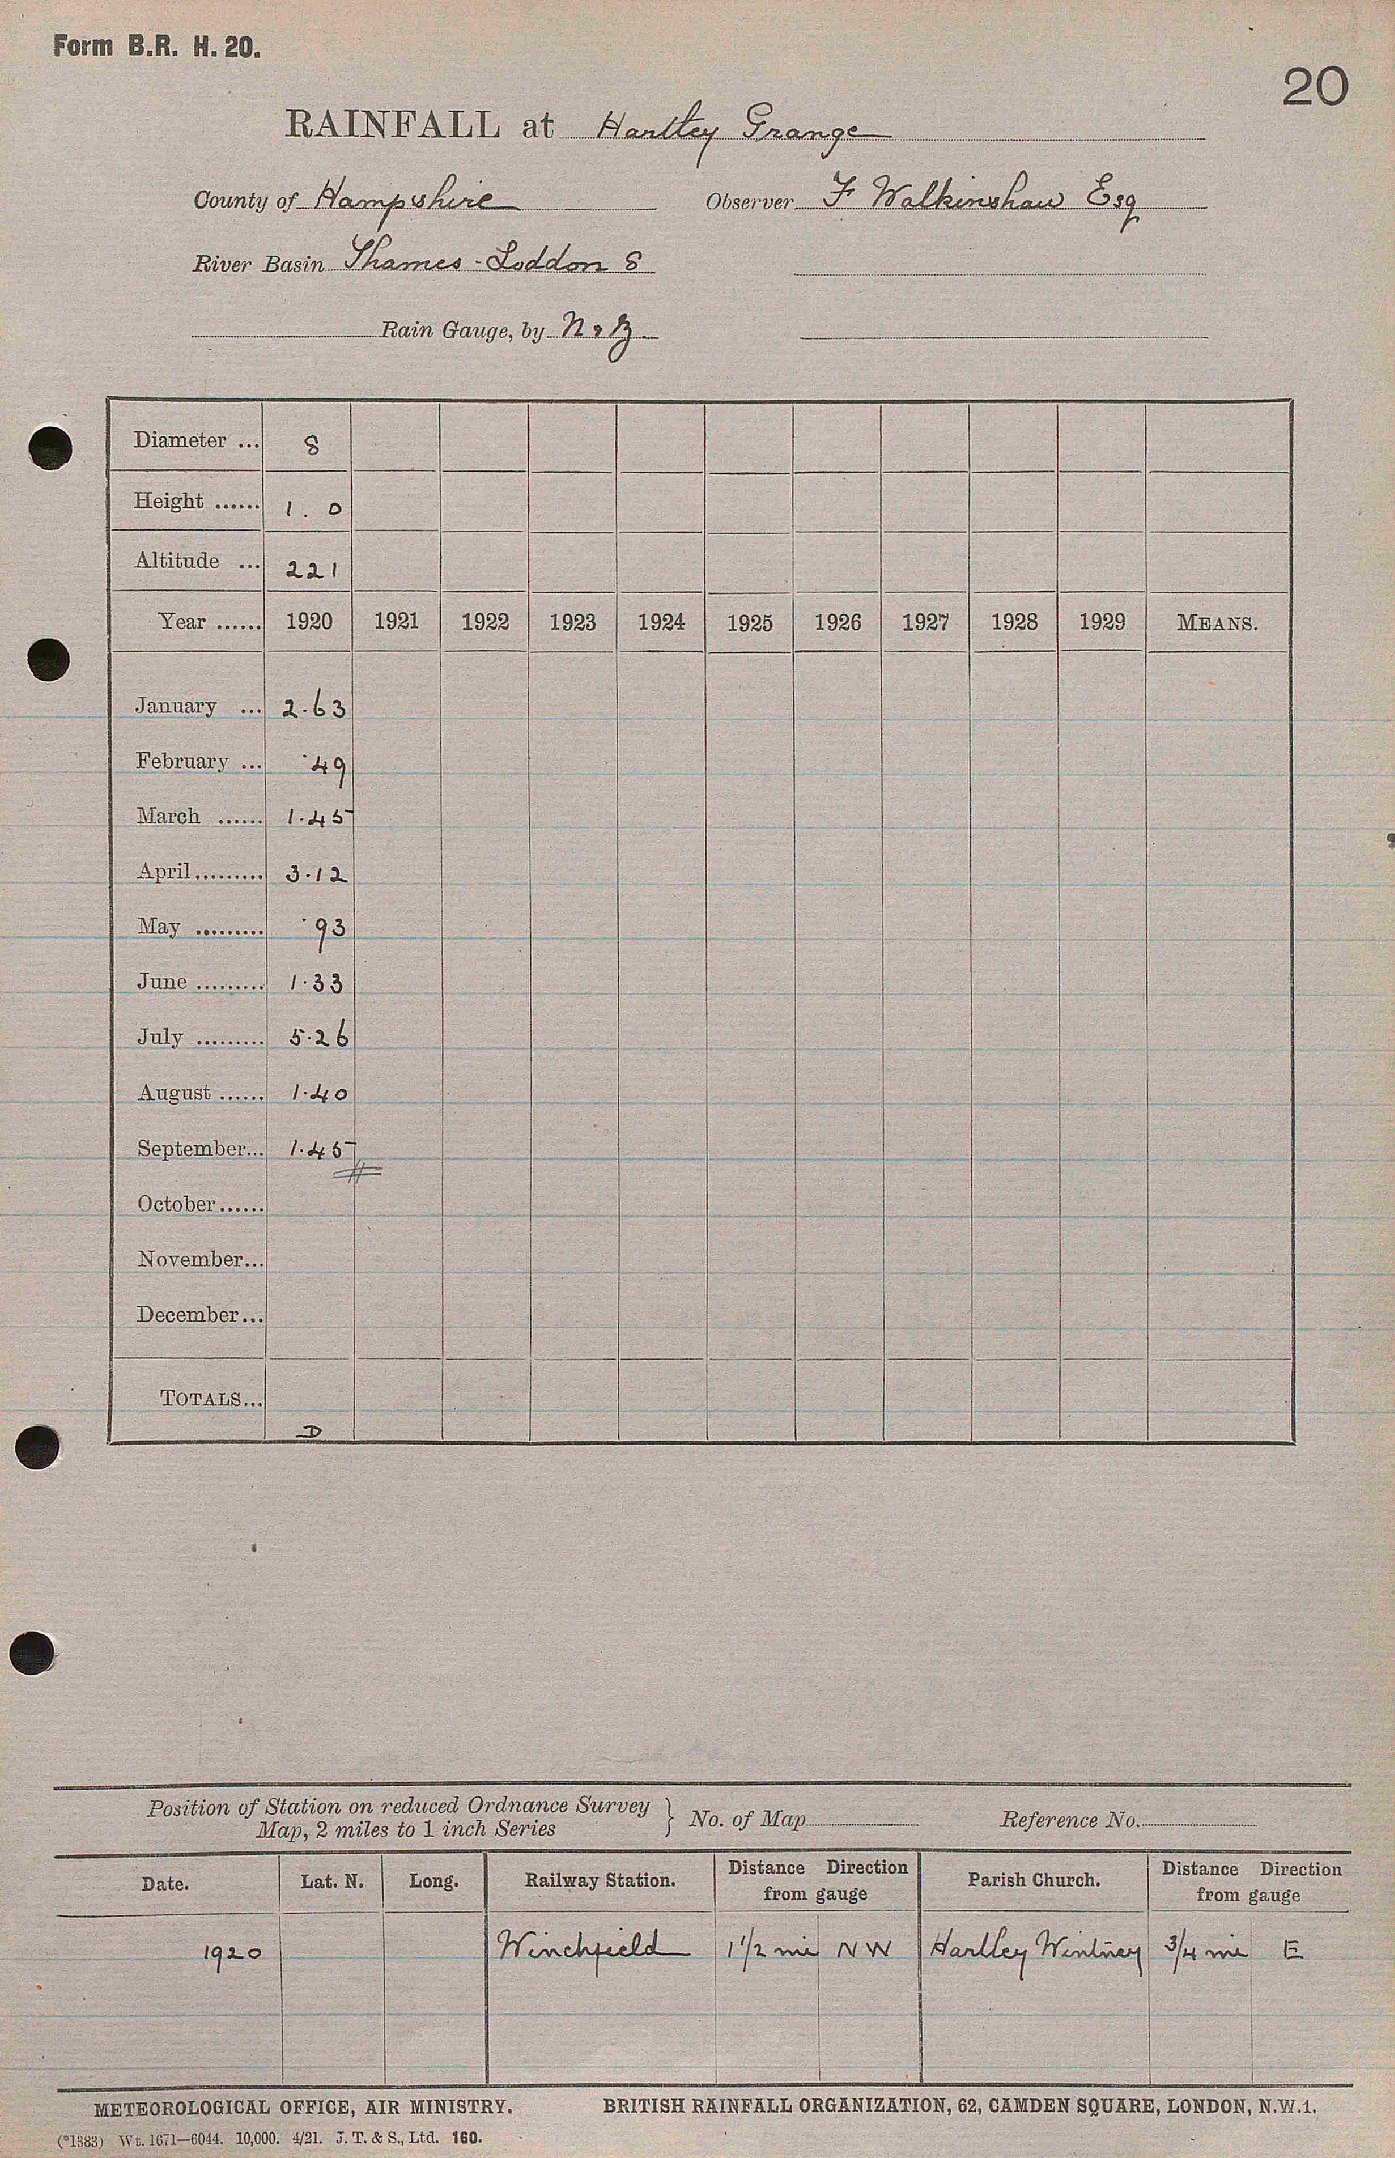 Form B.R. H. 20.
20
RAINFALL at Hartley Grange
County of Hampshire Observer F Walkinshaw Esq
River Basin Thames - Loddon S
Rain Gauge, by N & Z
Diameter ... 8
Height ...... 1. 0
Altitude ... 221
Year ...... 1920 1921 1922 1923 1924 1925 1926 1927 1928 1929 MEANS.
January ... 2.63
February ... .49
March ...... 1.45
April......... 3.12
May ......... .93
June ......... 1.33
July ......... 5.26
August ...... 1.40
September... 1.45
October......
November...
December...
TOTALS...
D
Position of Station on reduced Ordnance Survey
Map, 2 miles to 1 inch Series } No. of Map Reference No.
Date. Lat. N. Long. Railway Station. Distance Direction from gauge Parish Church. Distance Direction from gauge
1920 Winchfield 1 1/2 mi NW Hartley Wintney 3/4 mi E
METEOROLOGICAL OFFICE, AIR MINISTRY. BRITISH RAINFALL ORGANIZATION, 62, CAMDEN SQUARE, LONDON, N.W.1.
(*1383) Wt. 1671—6044. 10,000. 4/21. J. T. & S., Ltd. 160.